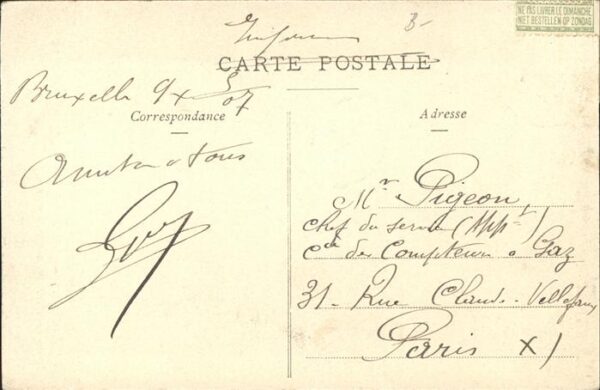 B-
NE PAS LIVRER LE DIMANCHE
NIET BESTELLEN OP ZONDAG
CARTE POSTALE
Bruxelles 9/X 07
Correspondance
Amitiés a tous
Guy
Adresse
Mr Pigeon,
Chef du service (Appt)
Cie des Compteurs à Gaz
31- Rue Claude-Vellefaux
Paris X)